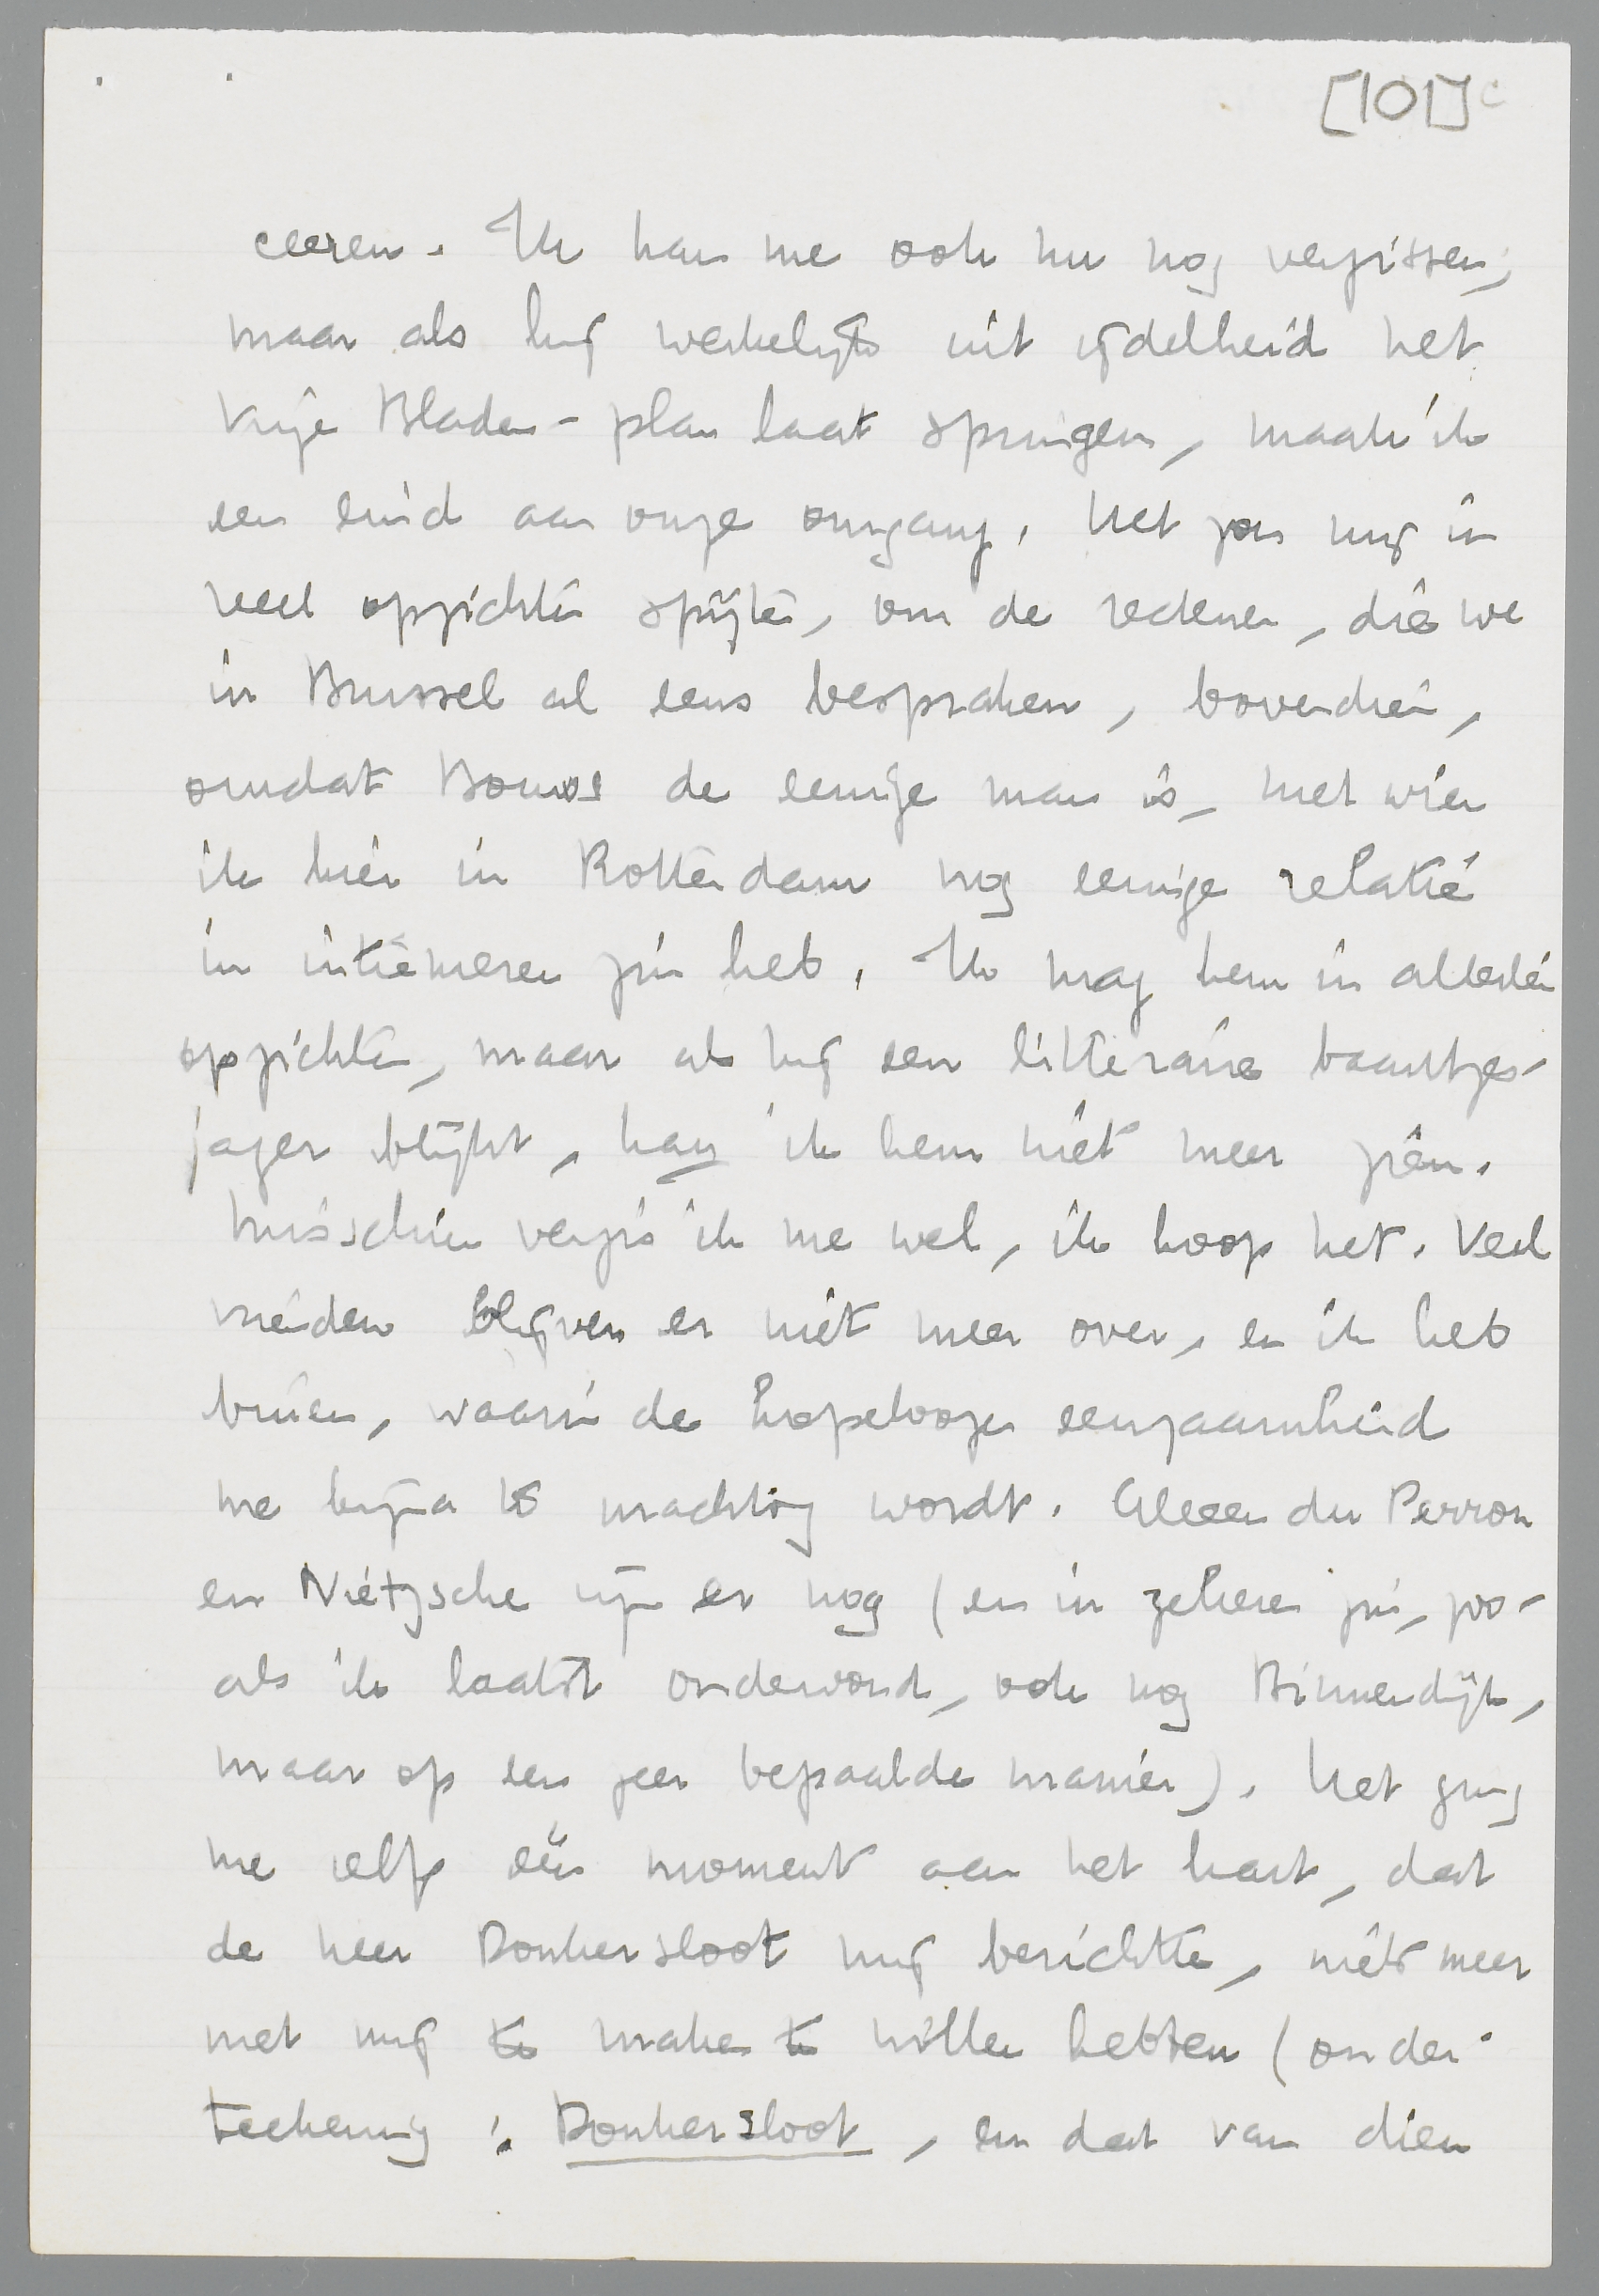 [101] c
ceeren. Ik kan me ook nu nog vergissen,
maar als hij werkelijk uit ijdelheid het
Vrije Bladen-plan laat springen, maak ik
een eind aan onze omgang. Het zou mij in
veel opzichten spijten, om de redenen, die we
in Brussel al eens bespraken, bovendien,
omdat Bouws de eenige man is, met wien
ik hier in Rotterdam nog eenige relatie
in intiemeren zin heb. Ik mag hem in allerlei
opzichten, maar als hij een litteraire baantjes-
jager blijkt, kan ik hem niet meer zien.
Misschien vergis ik me wel, ik hoop het. Veel
vrienden blijven er niet meer over, en ik heb
buien, waarin de hopelooze eenzaamheid
me bijna te machtig wordt. Alleen du Perron
en Nietzsche zijn er nog (en in zekeren zin, zoo-
als ik laatst ondervond, ook nog Binnendijk,
maar op een zeer bepaalde manier). Het ging
me zelfs één moment aan het hart, dat
de heer Donkersloot mij berichtte, niets meer
met mij te maken te willen hebben (onder-
teekening: Donkersloot, en dat van dien